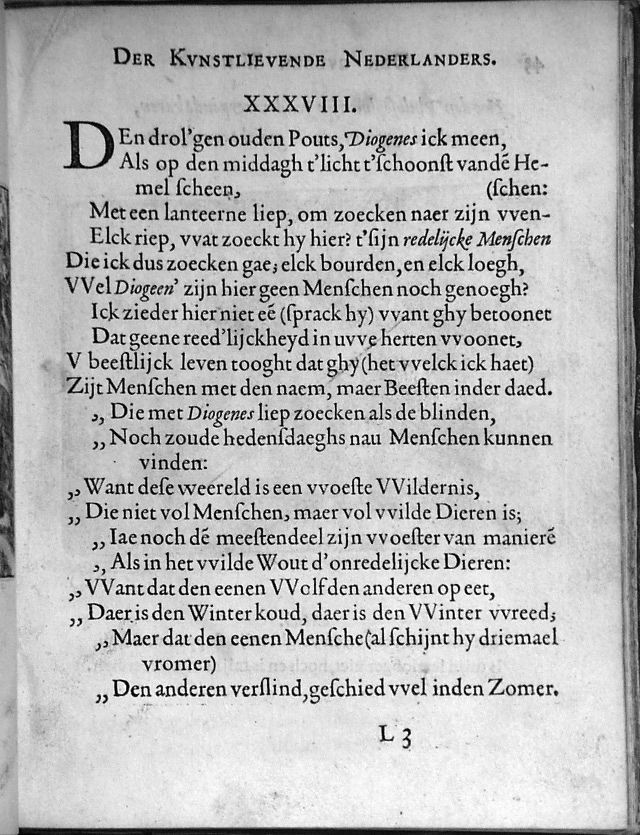 DER KVNSTLIEVENDE NEDERLANDERS.
XXXVIII.
DEn drol'gen ouden Pouts, Diogenes ick meen,
Als op den middagh t'licht t'ſchoonſt vandẽ He-
mel ſcheen, (ſchen:
Met een lanteerne liep, om zoecken naer zijn vven-
Elck riep, vvat zoeckt hy hier? t'ſijn redelijcke Menſchen
Die ick dus zoecken gae; elck bourden, en elck loegh,
VVel Diogeen' zijn hier geen Menſchen noch genoegh?
Ick zieder hier niet eẽ (ſprack hy) vvant ghy betoonet
Dat geene reed'lijckheyd in uvve herten vvoonet,
V beeſtlijck leven tooght dat ghy (het vvelck ick haet)
Zijt Menſchen met den naem, maer Beeſten inder daed.
,, Die met Diogenes liep zoecken als de blinden,
,, Noch zoude hedenſdaeghs nau Menſchen kunnen
vinden:
,, Want deſe weereld is een vvoeſte VVildernis,
,, Die niet vol Menſchen, maer vol vvilde Dieren is;
,, Iae noch dẽ meeſtendeel zijn vvoeſter van manierẽ
,, Als in het vvilde Wout d'onredelijcke Dieren:
,, VVant dat den eenen VVolf den anderen op eet,
,, Daer is den Winter koud, daer is den VVinter vvreed;
,, Maer dat den eenen Menſche (al ſchijnt hy driemael
vromer)
,, Den anderen verſlind, geſchied vvel inden Zomer.
L 3